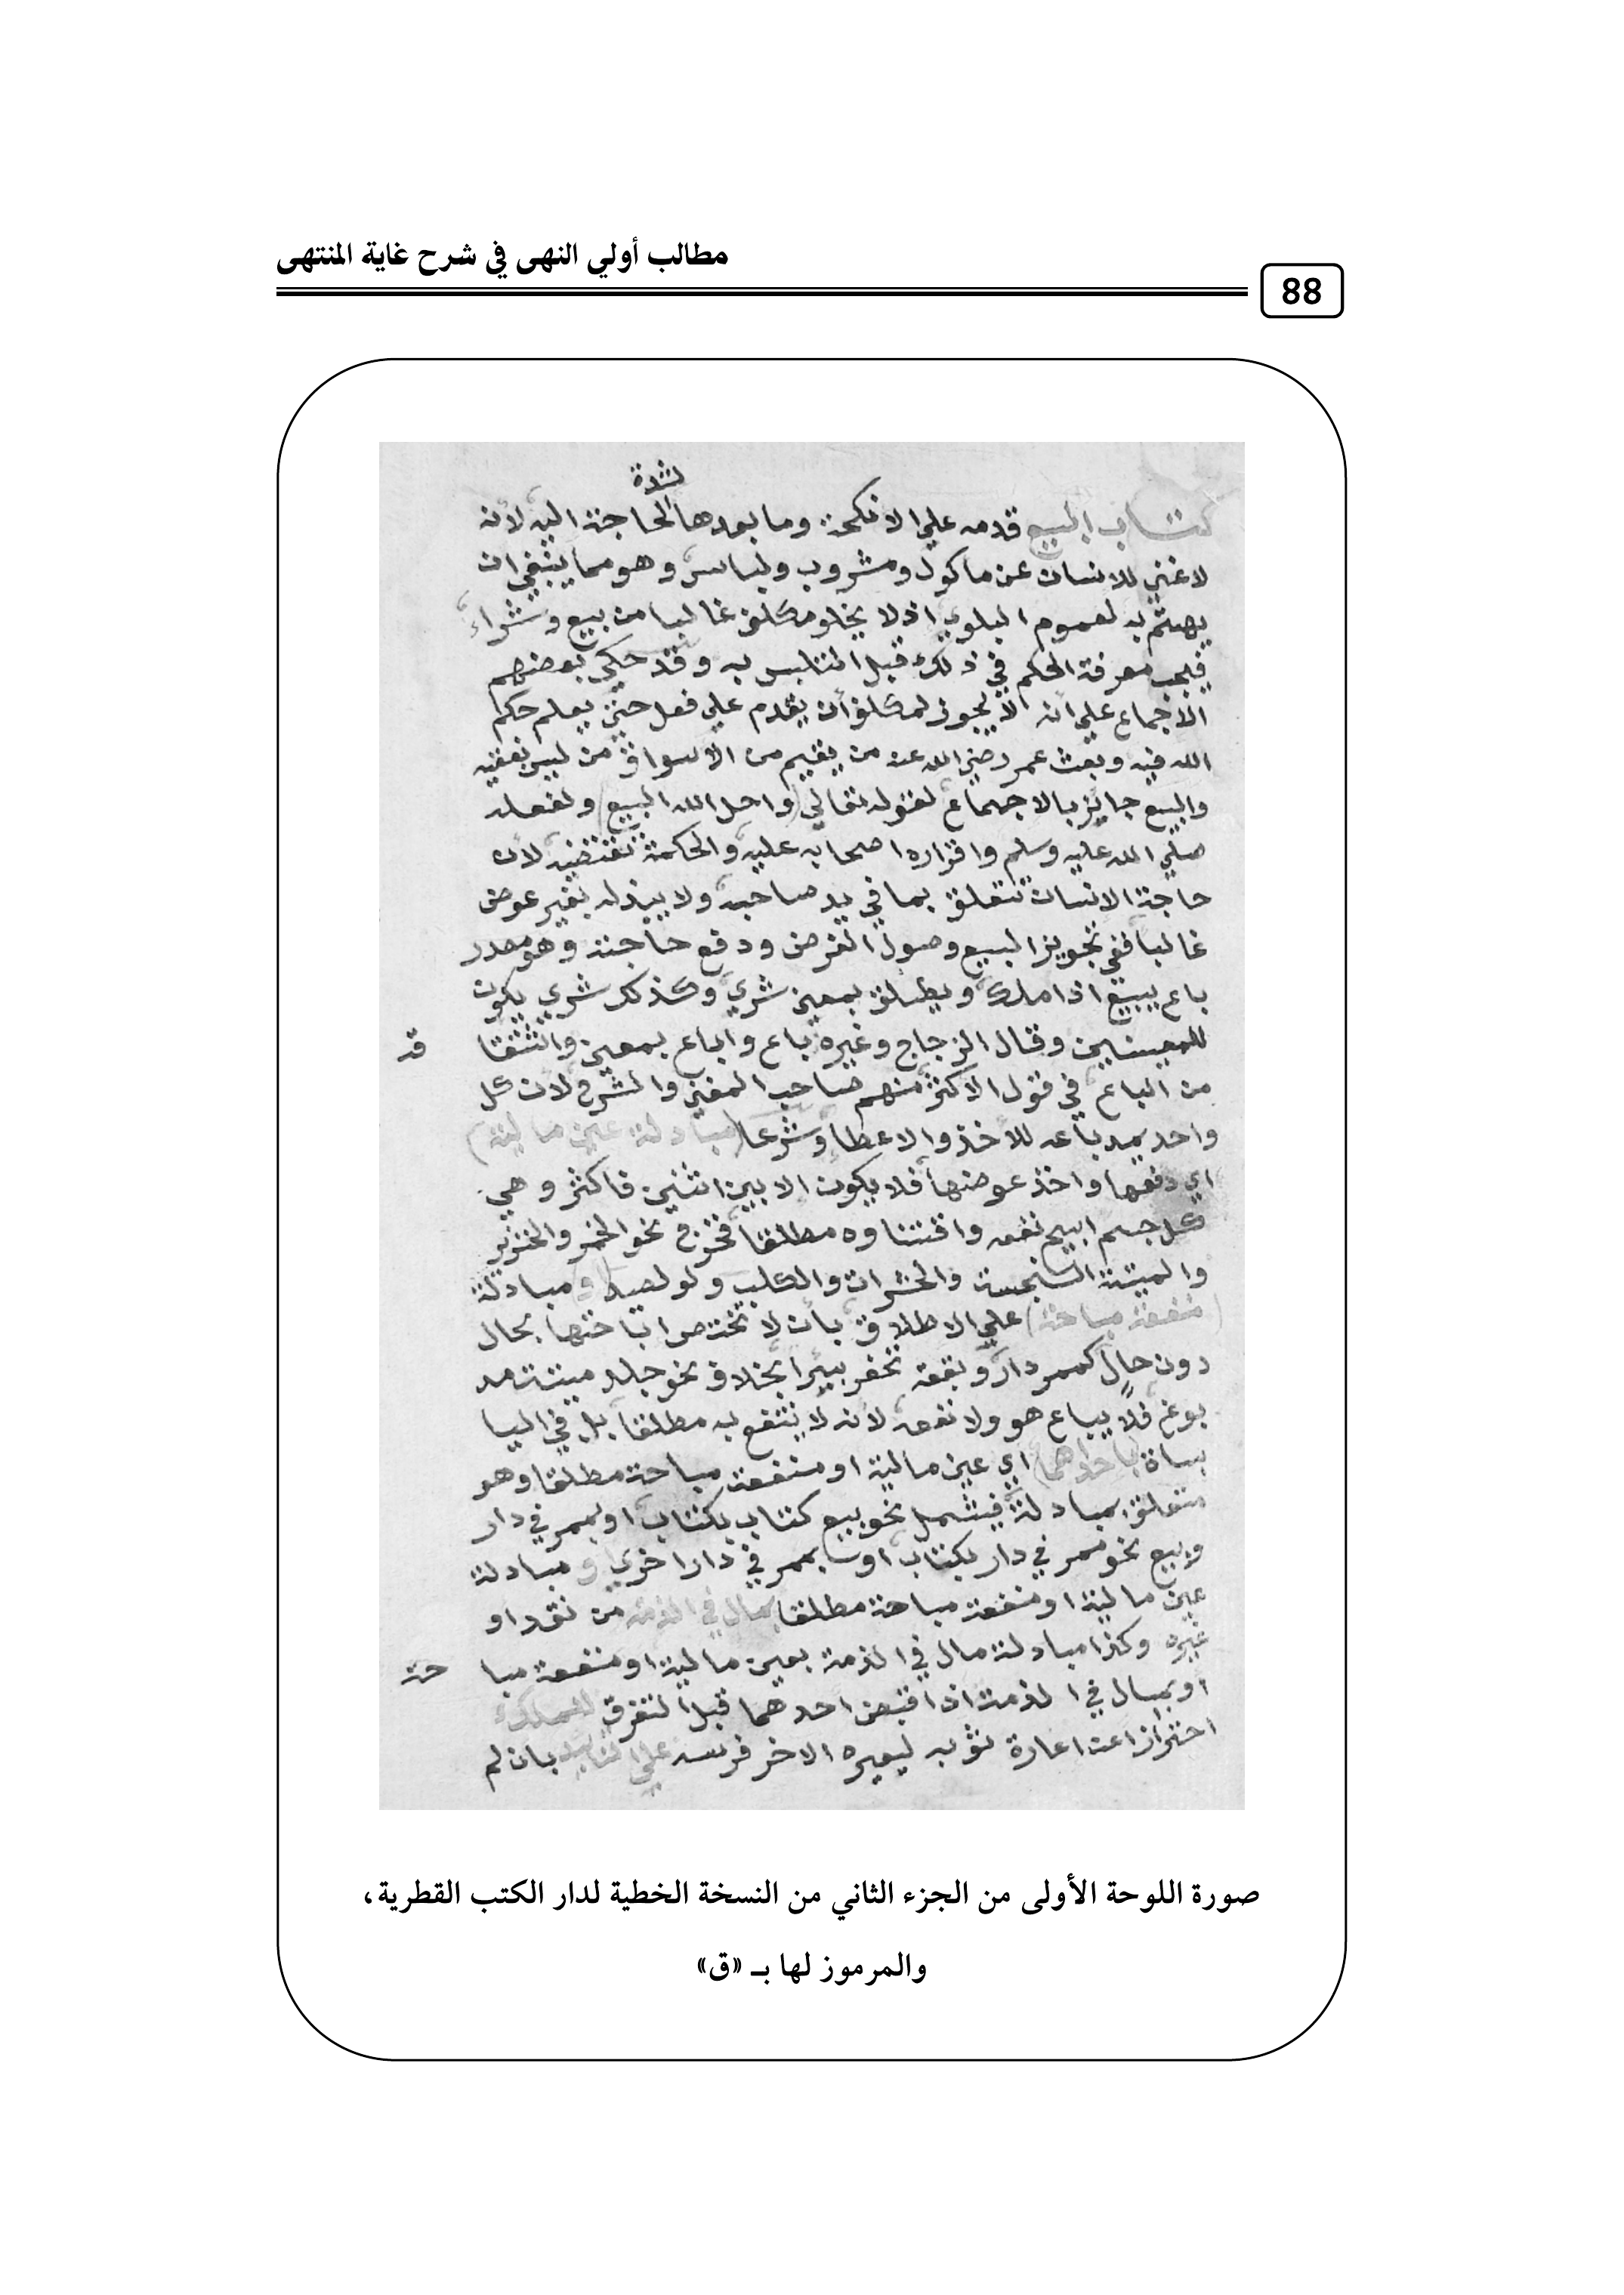 مطالب أولي النهى في شرح غاية المنتهى
88
لشدة
كتاب البيع قدمه علي الانكحة وما بعدها الحاجة اليه لانه
لا غني للانسان عن ماكول ومشروب ولباس وهو مما ينبغي ان
يهتم به لعموم البلوي اذ لا يخلو مكلف غالبا من بيع وشراء
فيجب معرفة الحكم في ذلك قبل التلبس به وقد حكي بعضهم
الاجماع علي انه لا يجوز لمكلف أن يقدم علي فعل حتي يعلم حكم
الله فيه وبعث عمر رضي الله عنه من يقيم من الأسواق من ليس بفقيه
والبيع جايز بالاجماع لقوله تعالي (واحل الله البيع) ولفعله
صلي الله عليه وسلم واقراره اصحابه عليه والحكمة تقتضيه لأن
حاجة الانسان تتعلق بما في يد صاحبه ولا يبذله بغير عوض
غالبا ففي تجويز البيع وصول الغرض ودفع حاجته وهو مصدر
باع يبيع اذا ملك ويطلق بمعني شري وكذلك شري يكون
للمعنيين وقال الزجاج وغيره باع واباع بمعني واشتقا قه
من الباع في قول الاكثر منهم صاحب المغني والشرح لان كل
واحد يمد باعه للأخذ والاعطا وشرعا (مبادلة عين مالية)
اي دفعها واخذ عوضها فلا يكون الا بين اثنين فاكثر وهي
كل جسم ابيح نفعه واقتناوه مطلقا فخرج نحو الخمر والخنزير
والميتة النجسة والحشرات والكلب ولو لصيد (و) مبادلة
(منفعة مباحة) علي الاطلاق بأن لا تختص اباحتها بحال
دون حال كممر دار وبقعة تحفر بيرا بخلاف نحو جلد ميتة مد
بوغ فلا يباع هو ولا نفعه لانه لا ينتفع به مطلقا بل في اليا
بساة (باحداهما) اي عين مالية او منفعة مباحة مطلقا وهو
متعلق بمبادلة فيشمل نحو بيع كتاب بكتاب او بممر في دار
وبيع نحو ممر في دار بكتاب او بممر في دار اخري و مبادلة
عين مالية او منفعة مباحة مطلقا بمال في الذمة من نقد او
غيره وكذا مبادلة مال في الذمة بعين مالية او منفعة مبا حة
او بمال في الذمة اذا قبض احدهما قبل التفرق للملك
احترازا عن اعارة ثوبه ليعيره الاخر فرسه علي التأبيد بان لم
صورة اللوحة الأولى من الجزء الثاني من النسخة الخطية لدار الكتب القطرية،
والمرموز لها بـ «ق»